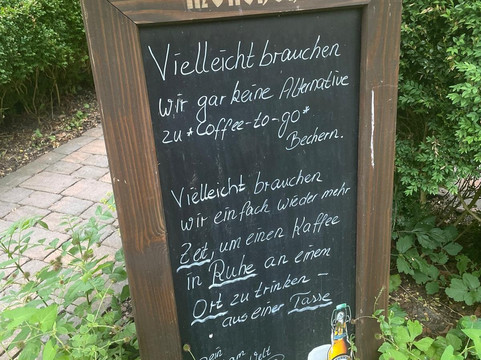 Vielleicht brauchen
wir gar keine Alternative
zu *Coffee-to-go*
Bechern.
Vielleicht brauchen
wir einfach wieder mehr
Zeit, um einen Kaffee
in Ruhe an einem
Ort zu trinken –
aus einer Tasse